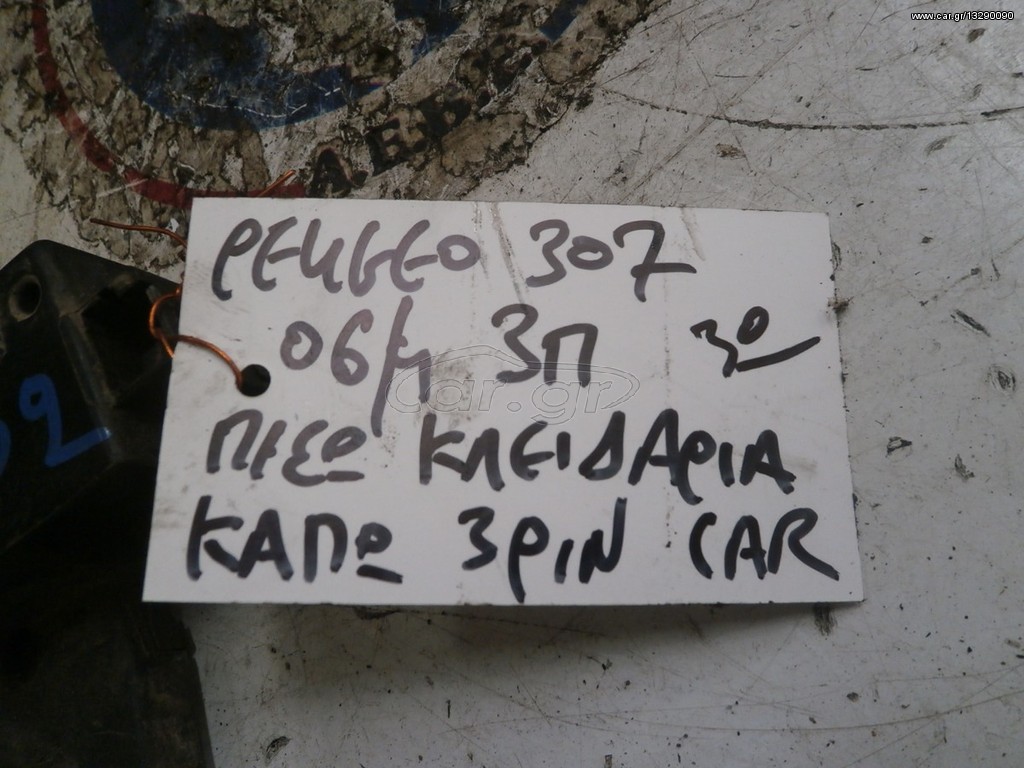 www.car.gr/13290090
PEUGEO 307
06/μ 3Π 30
ΠΙΣΩ ΚΛΕΙΔΑΡΙΑ
ΚΑΠΩ 3PIN CAR
car.gr